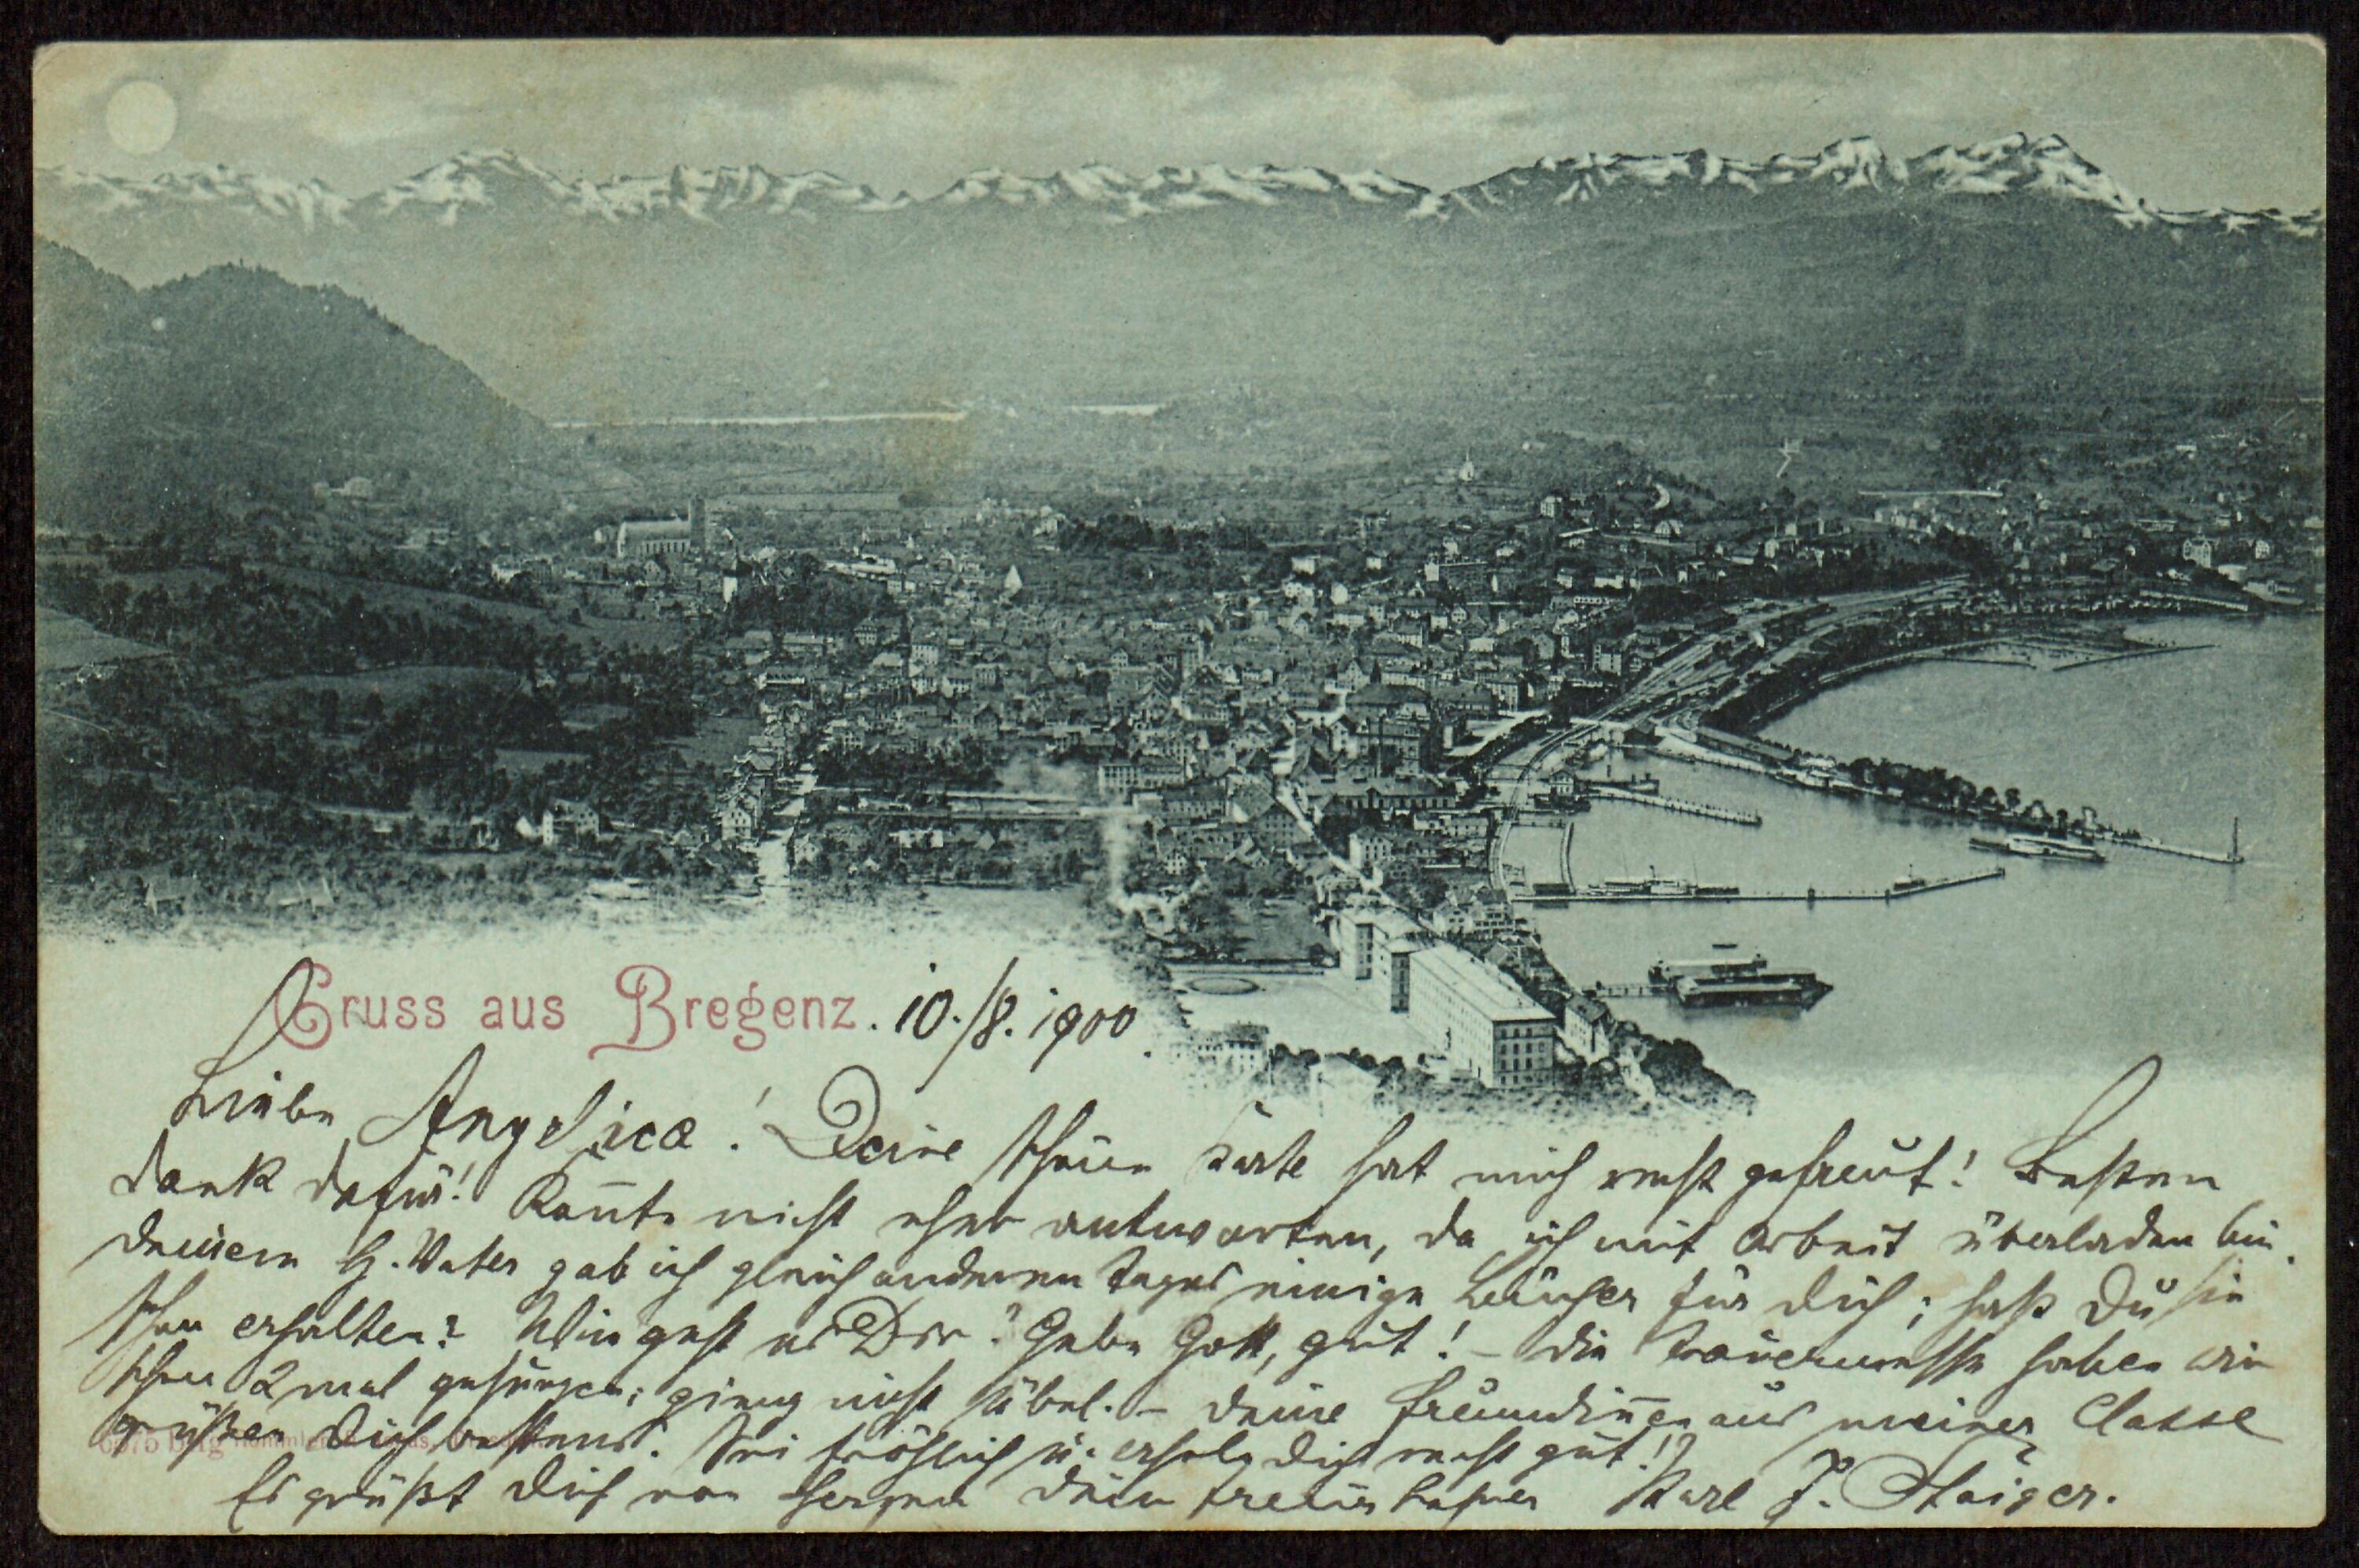 Gruss aus Bregenz. 10./8. 1900.
Liebe Angelica! Deine schöne Karte hat mich recht gefreut! Besten
Dank dafür! Konnte nicht eher antworten, da ich mit Arbeit überladen bin.
Deinem H. Vater gab ich gleich anderen Tages einige Bücher für Dich; hast Du sie
schon erhalten? Wie geht es Dir? Gebe Gott, gut! – Die Trauermesse haben wir
schon 2 mal gesungen; gieng nicht übel. – Deine Freundinen aus meiner Classe
grüßen Dich bestens. Sei fröhlich u. erhole Dich recht gut!
Es grüßt Dich von Herzen Dein treuer Lehrer Karl J. Staiger.
6575 Dttg